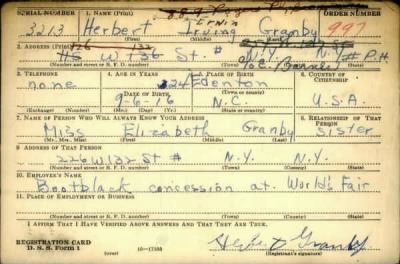 SERIAL NUMBER 1. NAME (Print) ORDER NUMBER
ERNIE
3213 Herbert Irving Granby 997
(First) (Middle) (Last)
2. ADDRESS (Print)
W 136 St. # N.Y. N.Y.
(Number and street or R. F. D. number) (Town) (County) (State)
3. TELEPHONE 4. AGE IN YEARS 5. PLACE OF BIRTH 6. COUNTRY OF CITIZENSHIP
none 24 Edenton
DATE OF BIRTH (Town or county)
9-6-16 N.C. U.S.A.
(Exchange) (Number) (Mo.) (Day) (Yr.) (State or country)
7. NAME OF PERSON WHO WILL ALWAYS KNOW YOUR ADDRESS 8. RELATIONSHIP OF THAT PERSON
Miss Elizabeth Granby sister
(Mr., Mrs., Miss) (First) (Middle) (Last)
9. ADDRESS OF THAT PERSON
220 W 132 St # N.Y. N.Y.
(Number and street or R. F. D. number) (Town) (County) (State)
10. EMPLOYER'S NAME
Bootblack concession at World's Fair
11. PLACE OF EMPLOYMENT OR BUSINESS
(Number and street or R. F. D. number) (Town) (County) (State)
I AFFIRM THAT I HAVE VERIFIED ABOVE ANSWERS AND THAT THEY ARE TRUE.
REGISTRATION CARD
D. S. S. Form 1 Herbert Granby
(Registrant's signature)